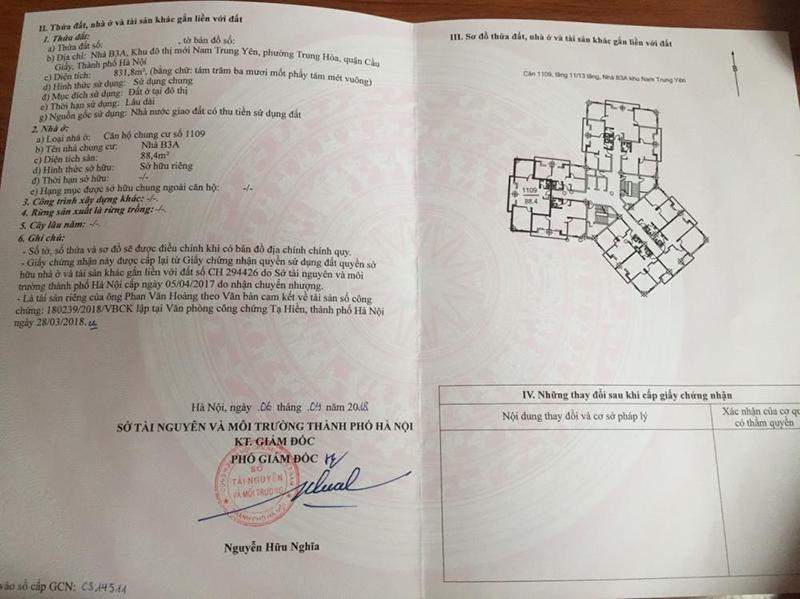 II. Thửa đất, nhà ở và tài sản khác gắn liền với đất
1. Thửa đất:
a) Thửa đất số: , tờ bản đồ số:
b) Địa chỉ: Nhà B3A, Khu đô thị mới Nam Trung Yên, phường Trung Hòa, quận Cầu
Giấy, Thành phố Hà Nội
c) Diện tích: 831,8m², (bằng chữ: tám trăm ba mươi mốt phẩy tám mét vuông)
d) Hình thức sử dụng: Sử dụng chung
đ) Mục đích sử dụng: Đất ở tại đô thị
e) Thời hạn sử dụng: Lâu dài
g) Nguồn gốc sử dụng: Nhà nước giao đất có thu tiền sử dụng đất
2. Nhà ở:
a) Loại nhà ở: Căn hộ chung cư số 1109
b) Tên nhà chung cư: Nhà B3A
c) Diện tích sàn: 88,4m²
d) Hình thức sở hữu: Sở hữu riêng
đ) Thời hạn sở hữu: -/-
e) Hạng mục được sở hữu chung ngoài căn hộ: -/-
3. Công trình xây dựng khác: -/-
4. Rừng sản xuất là rừng trồng:-/-
5. Cây lâu năm: -/-
6. Ghi chú:
- Số tờ, số thửa và sơ đồ sẽ được điều chỉnh khi có bản đồ địa chính chính quy.
- Giấy chứng nhận này được cấp lại từ Giấy chứng nhận quyền sử dụng đất quyền sở
hữu nhà ở và tài sản khác gắn liền với đất số CH 294426 do Sở tài nguyên và môi
trường thành phố Hà Nội cấp ngày 05/04/2017 do nhận chuyển nhượng.
- Là tài sản riêng của ông Phan Văn Hoàng theo Văn bản cam kết về tài sản số công
chứng: 180239/2018/VBCK lập tại Văn phòng công chứng Tạ Hiền, thành phố Hà Nội
ngày 28/03/2018.
Hà Nội, ngày 06 tháng 04 năm 2018
SỞ TÀI NGUYÊN VÀ MÔI TRƯỜNG THÀNH PHỐ HÀ NỘI
KT. GIÁM ĐỐC
PHÓ GIÁM ĐỐC
SỞ
TÀI NGUYÊN
VÀ MÔI TRƯỜNG
Nguyễn Hữu Nghĩa
vào sổ cấp GCN: CS14511
III. Sơ đồ thửa đất, nhà ở và tài sản khác gắn liền với đất
Căn 1109, tầng 11/13 tầng, Nhà B3A khu Nam Trung Yên
B
1109
88.4
IV. Những thay đổi sau khi cấp giấy chứng nhận
Nội dung thay đổi và cơ sở pháp lý
Xác nhận của cơ qu
có thẩm quyền